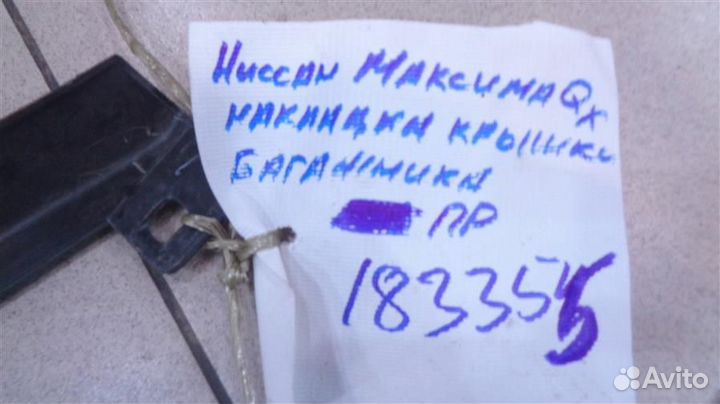 Ниссан МаксимаQx
накладка крышки
багажника
ПР
183355
Avito